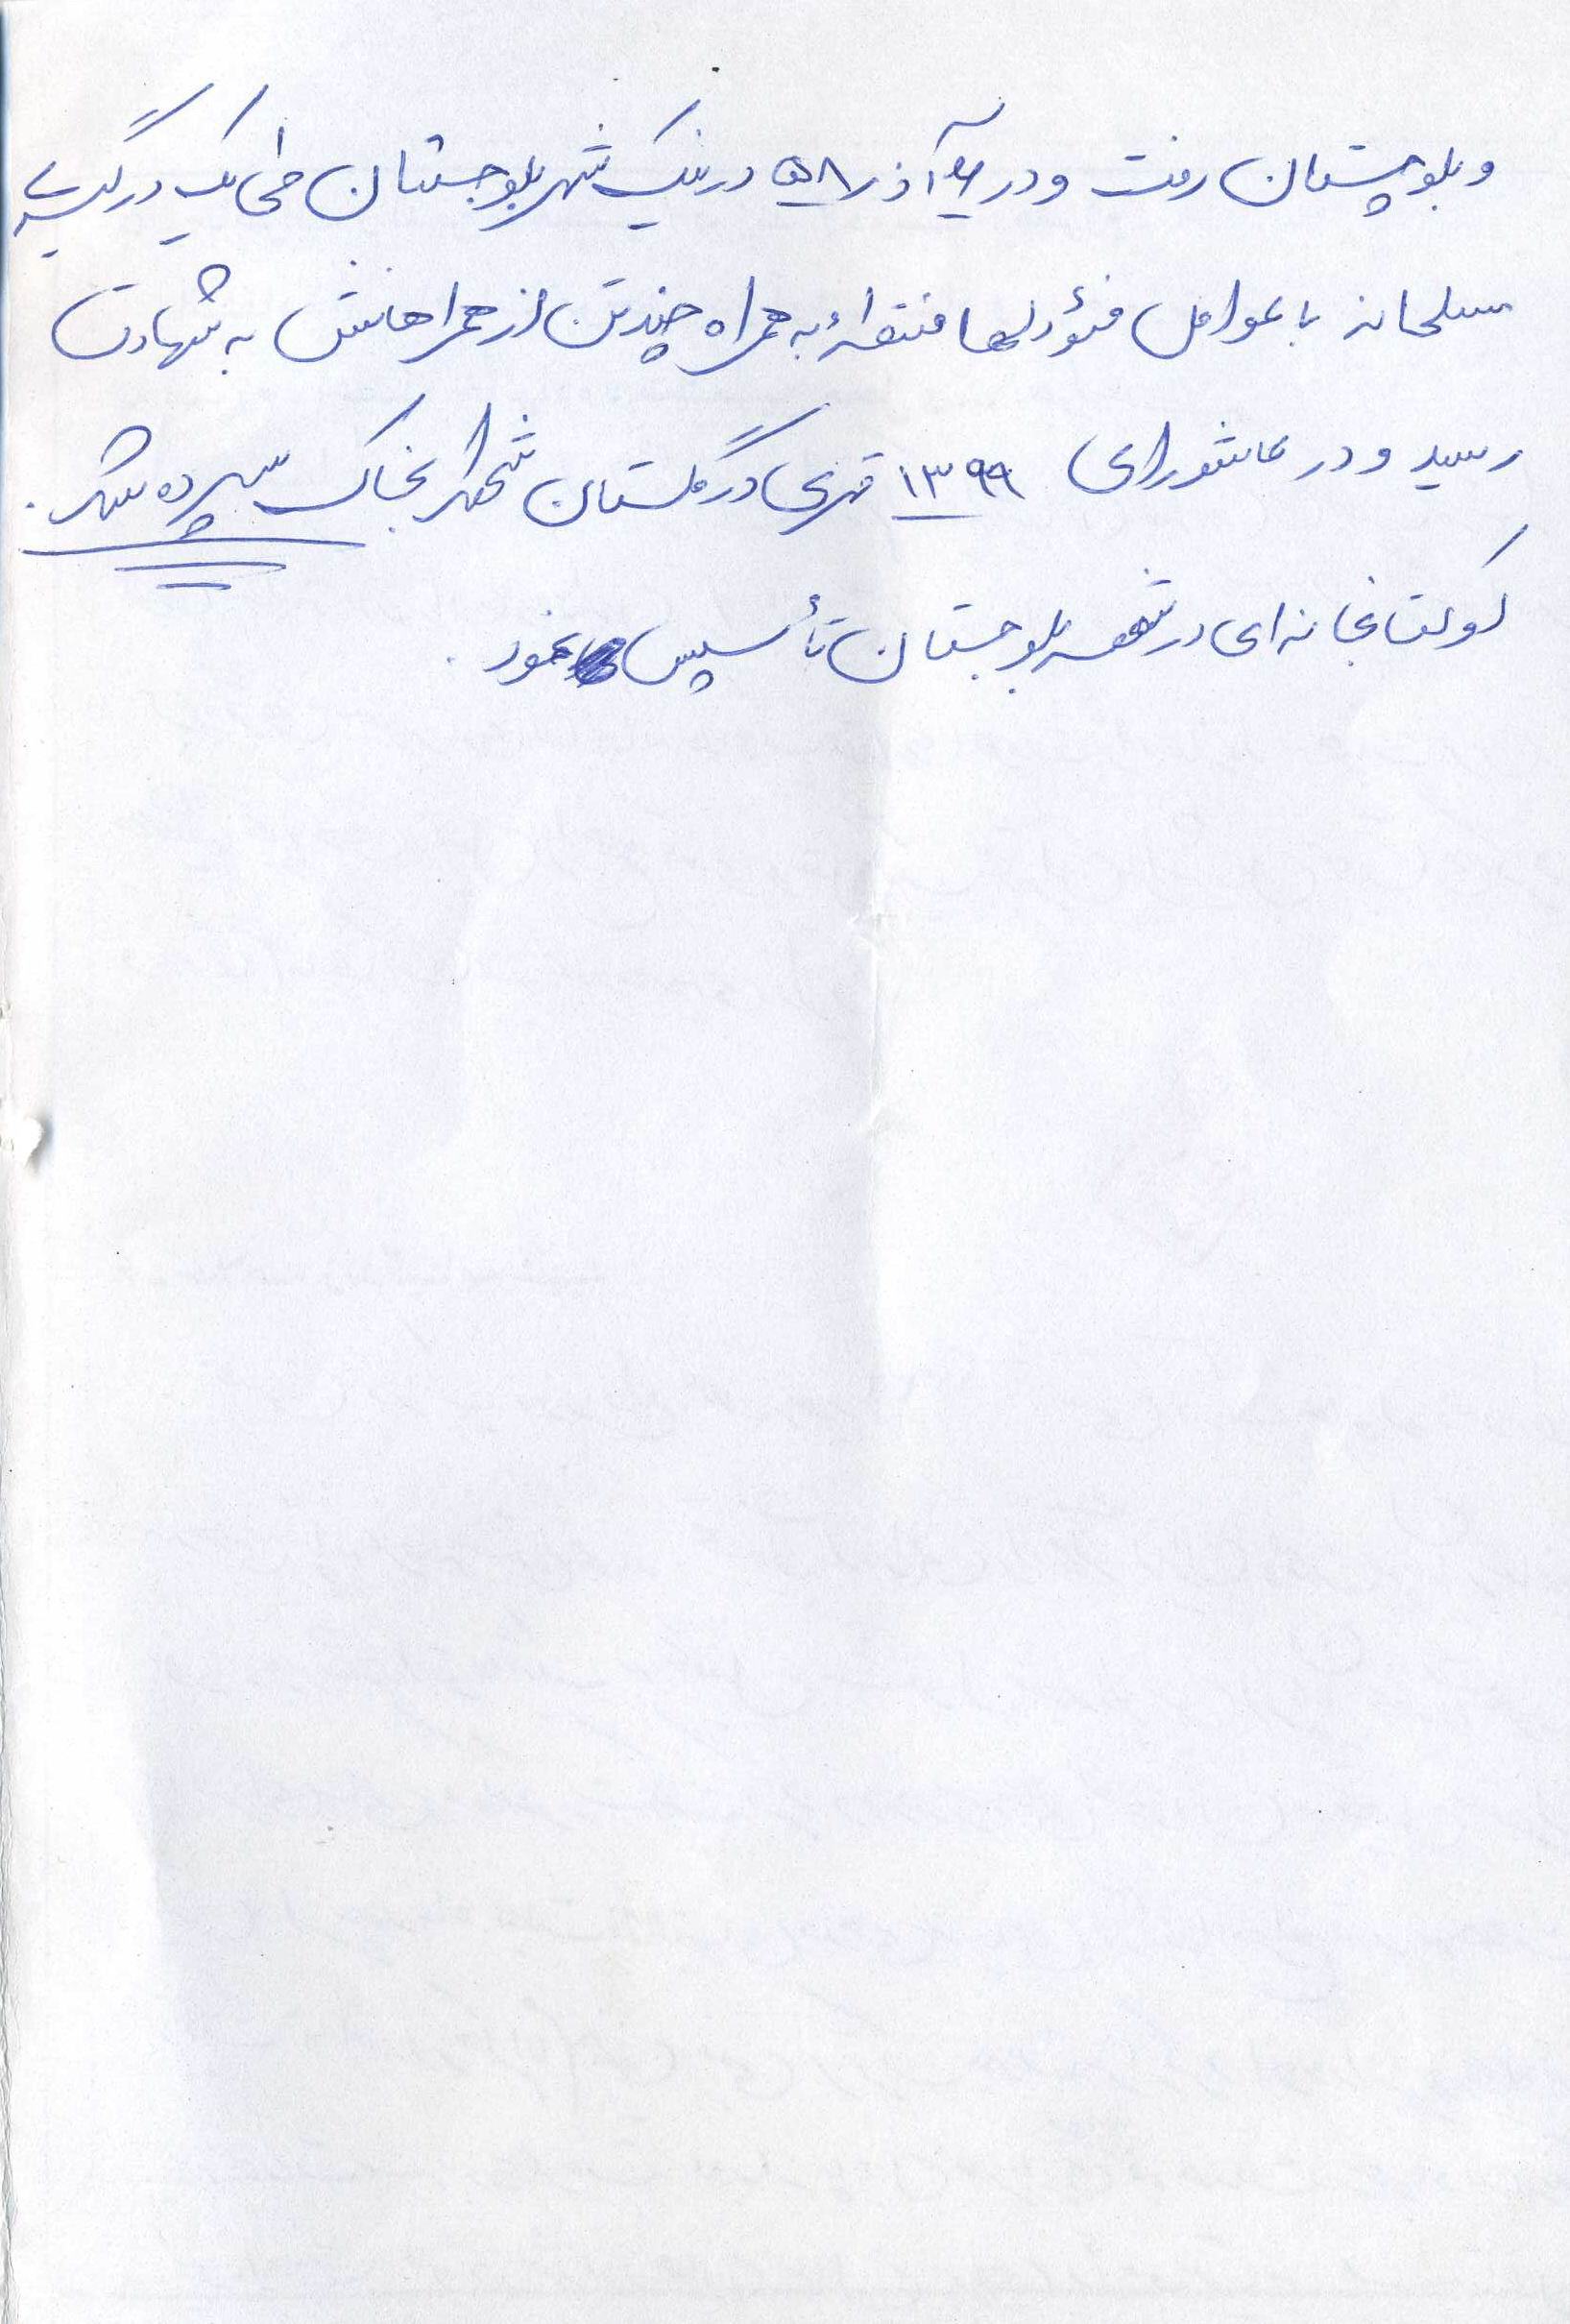 و بلوچستان رفت و در آذر ۵۸ در نیک شهر بلوچستان طی یک درگیری
مسلحانه با عوامل فئودالها منطقه به همراه چند تن از همراهانش به شهادت
رسید و در عاشورای ۱۳۹۹ قمری در گلستان شهدا بخاک سپرده شد.
او کتابخانه‌ای در بلوچستان تأسیس نمود.